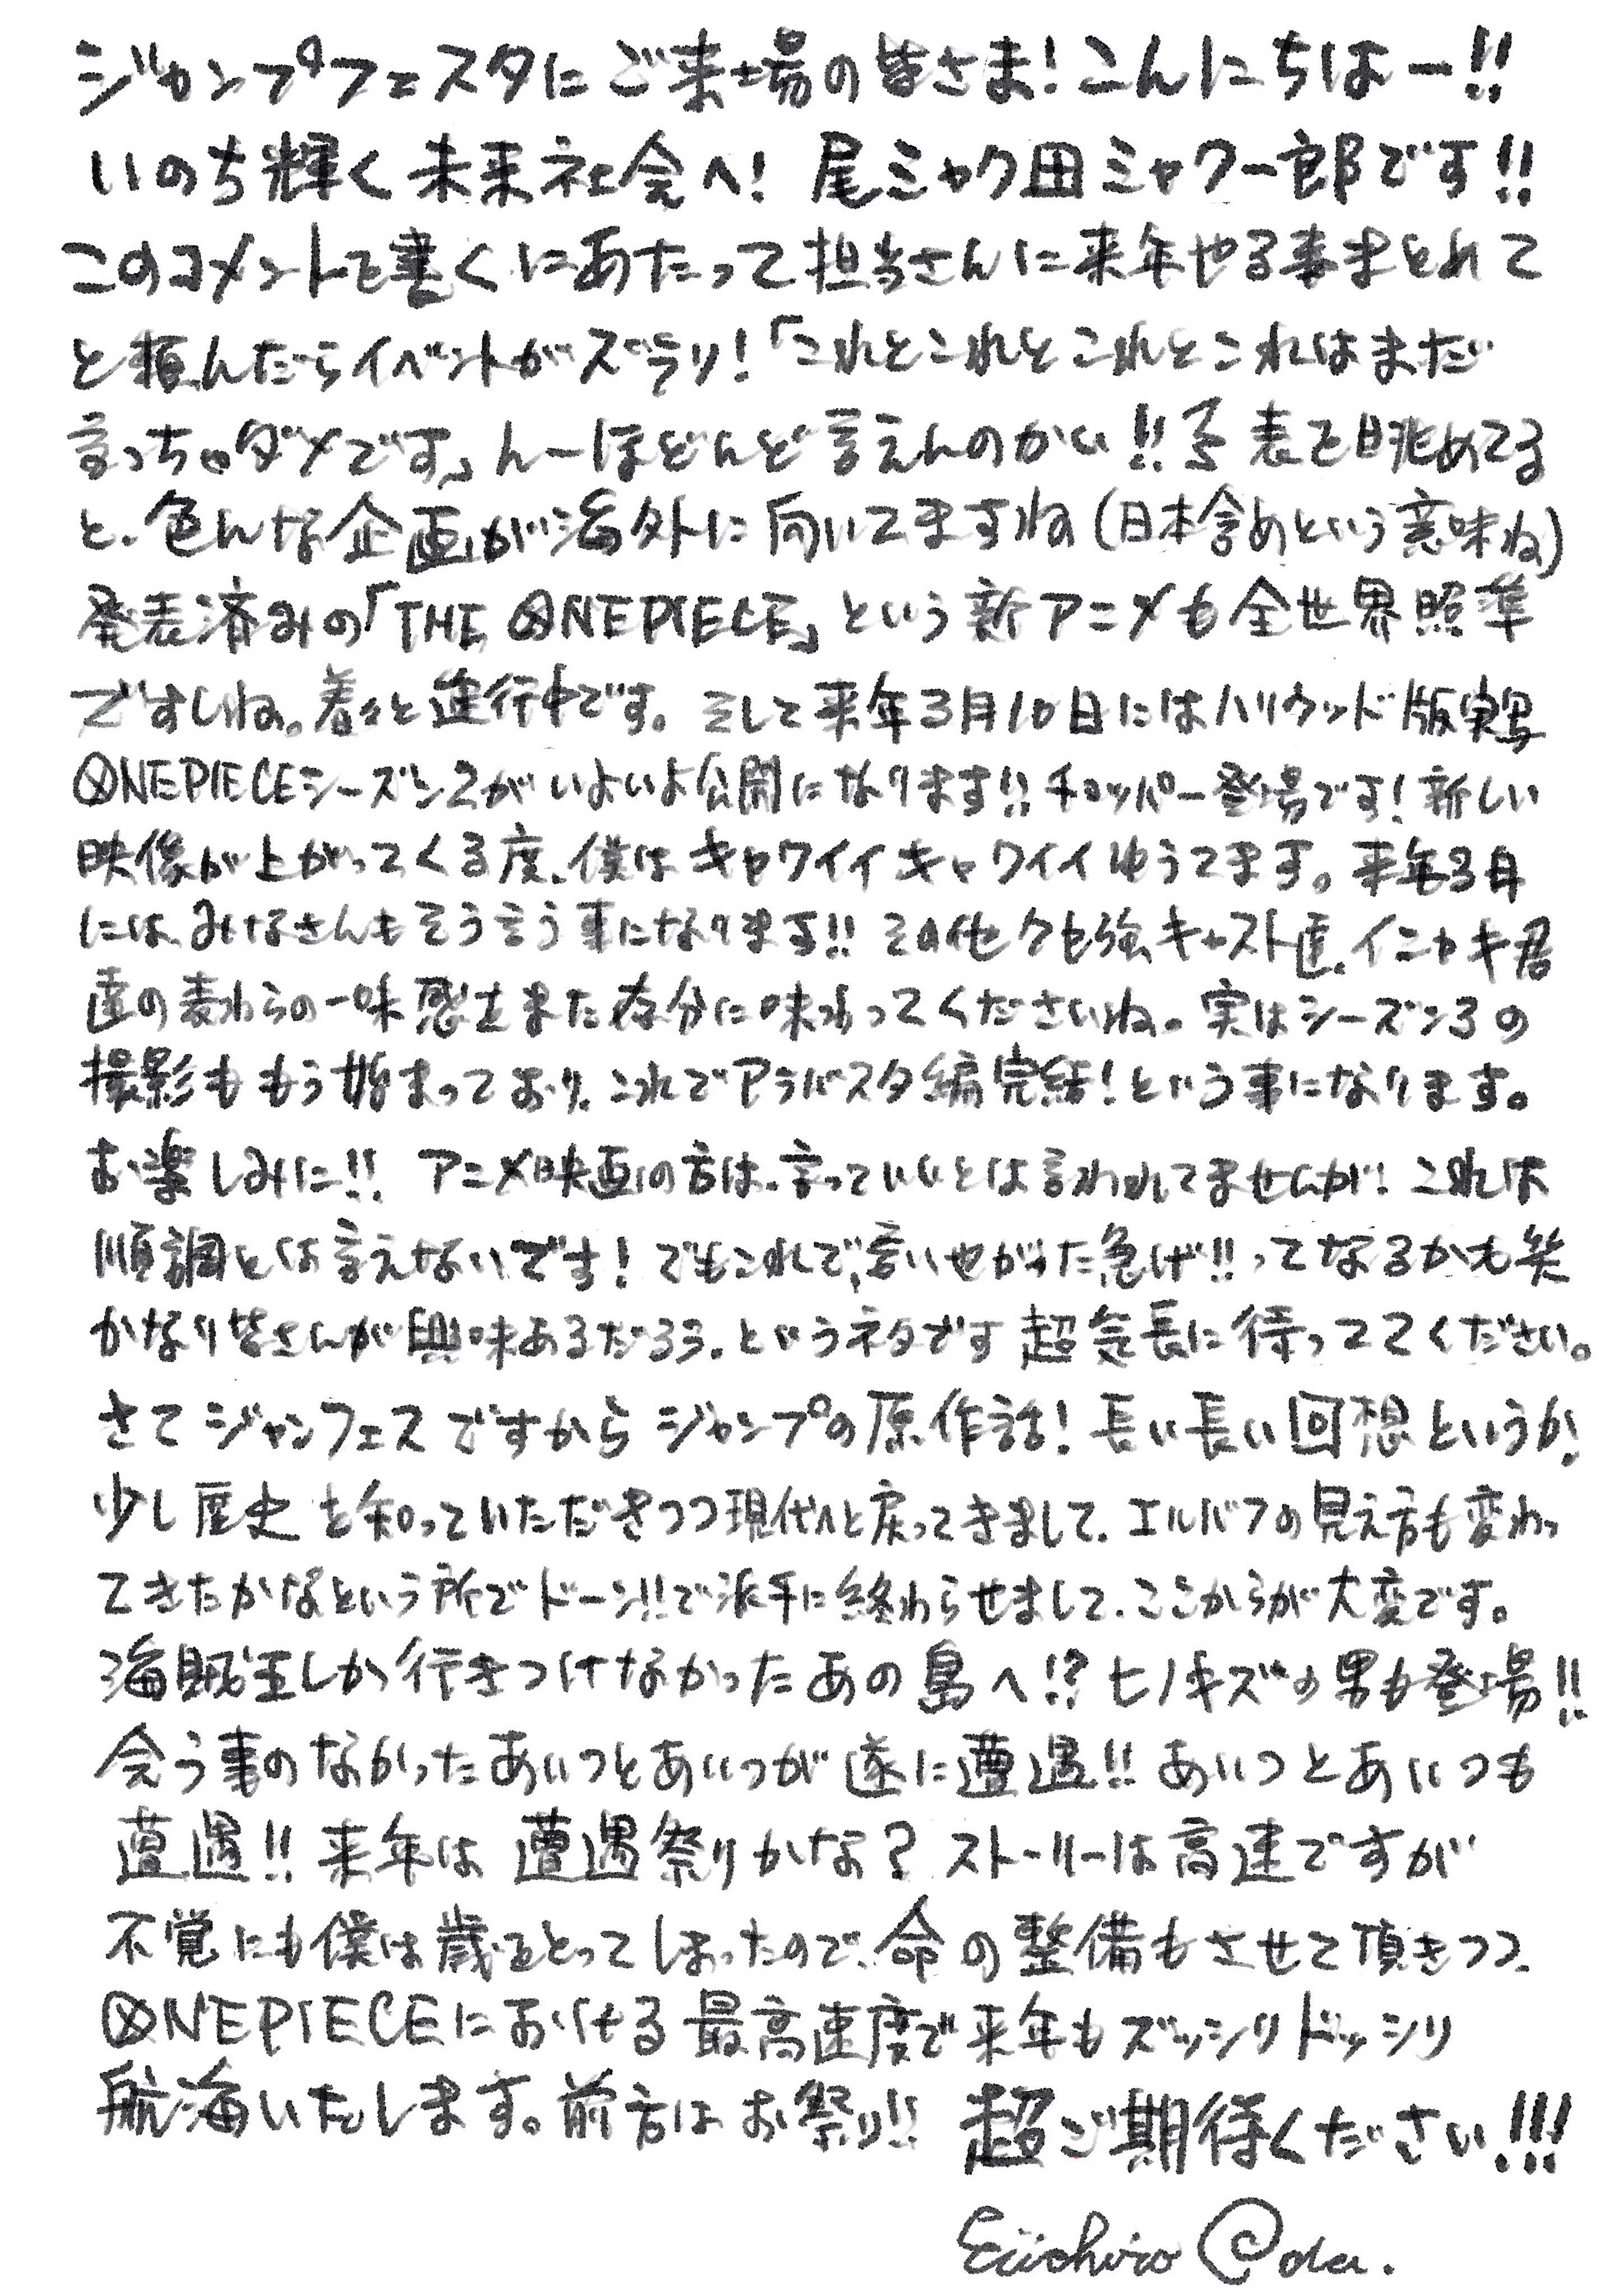 ジャンプフェスタにご来場の皆さま!こんにちはー!!
いのち輝く未来社会へ! 尾ミャク田ミャクー郎です!!
このコメントを書くにあたって担当さんに来年やる事まとめて
と頼んだらイベントがズラリ!「これとこれとこれとこれはまだ
言っちゃダメです」んーほどんど言えんのかい!!予表を眺めてる
と、色んな企画が海外に向いてますね(日本含めという意味ね)
発表済みの「THE ONE PIECE」という新アニメも全世界照準
ですしね。着々と進行中です。そして来年3月10日にはハリウッド版実写
ONE PIECEシーズン2がいよいよ公開になります!!チョッパー登場です!新しい
映像が上がってくる度、僕はキャワイイキャワイイゆうてます。来年3月
には、みなさんもそう言う事になります!!その他クセ強キャスト達、イニャキ君
達の麦わらの一味感をまた存分に味わってくださいね。実はシーズン3の
撮影ももう始まっており、これでアラバスタ編完結!という事になります。
お楽しみに!! アニメ映画の方は、言っていいとは言われてませんが!これは
順調とは言えないです!でもこれで、言いやがった急げ!!ってなるかも笑
かなり皆さんが興味あるだろう、というネタです 超気長に待っててください。
さてジャンフェスですからジャンプの原作話!長い長い回想というか!
少し歴史を知っていただきつつ現代へと戻ってきまして、エルバフの見え方も変わっ
てきたかなという所でドーン!!で派手に終わらせまして、ここからが大変です。
海賊王しか行きつけなかったあの島へ!?ヒノキズの男も登場!!
会う事のなかったあいつとあいつが遂に遭遇!!あいつとあいつも
遭遇!!来年は遭遇祭りかな?ストーリーは高速ですが
不覚にも僕は歳をとってしまったので、命の整備もさせて頂きつつ、
ONE PIECEにおける最高速度で来年もズッシリドッシリ
航海いたします。前方はお祭り!! 超ご期待ください!!!
Eiichiro Oda.